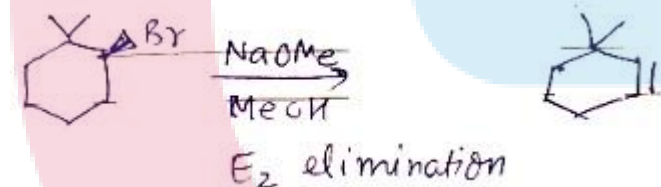 Br
NaOMe
MeOH
E2 elimination